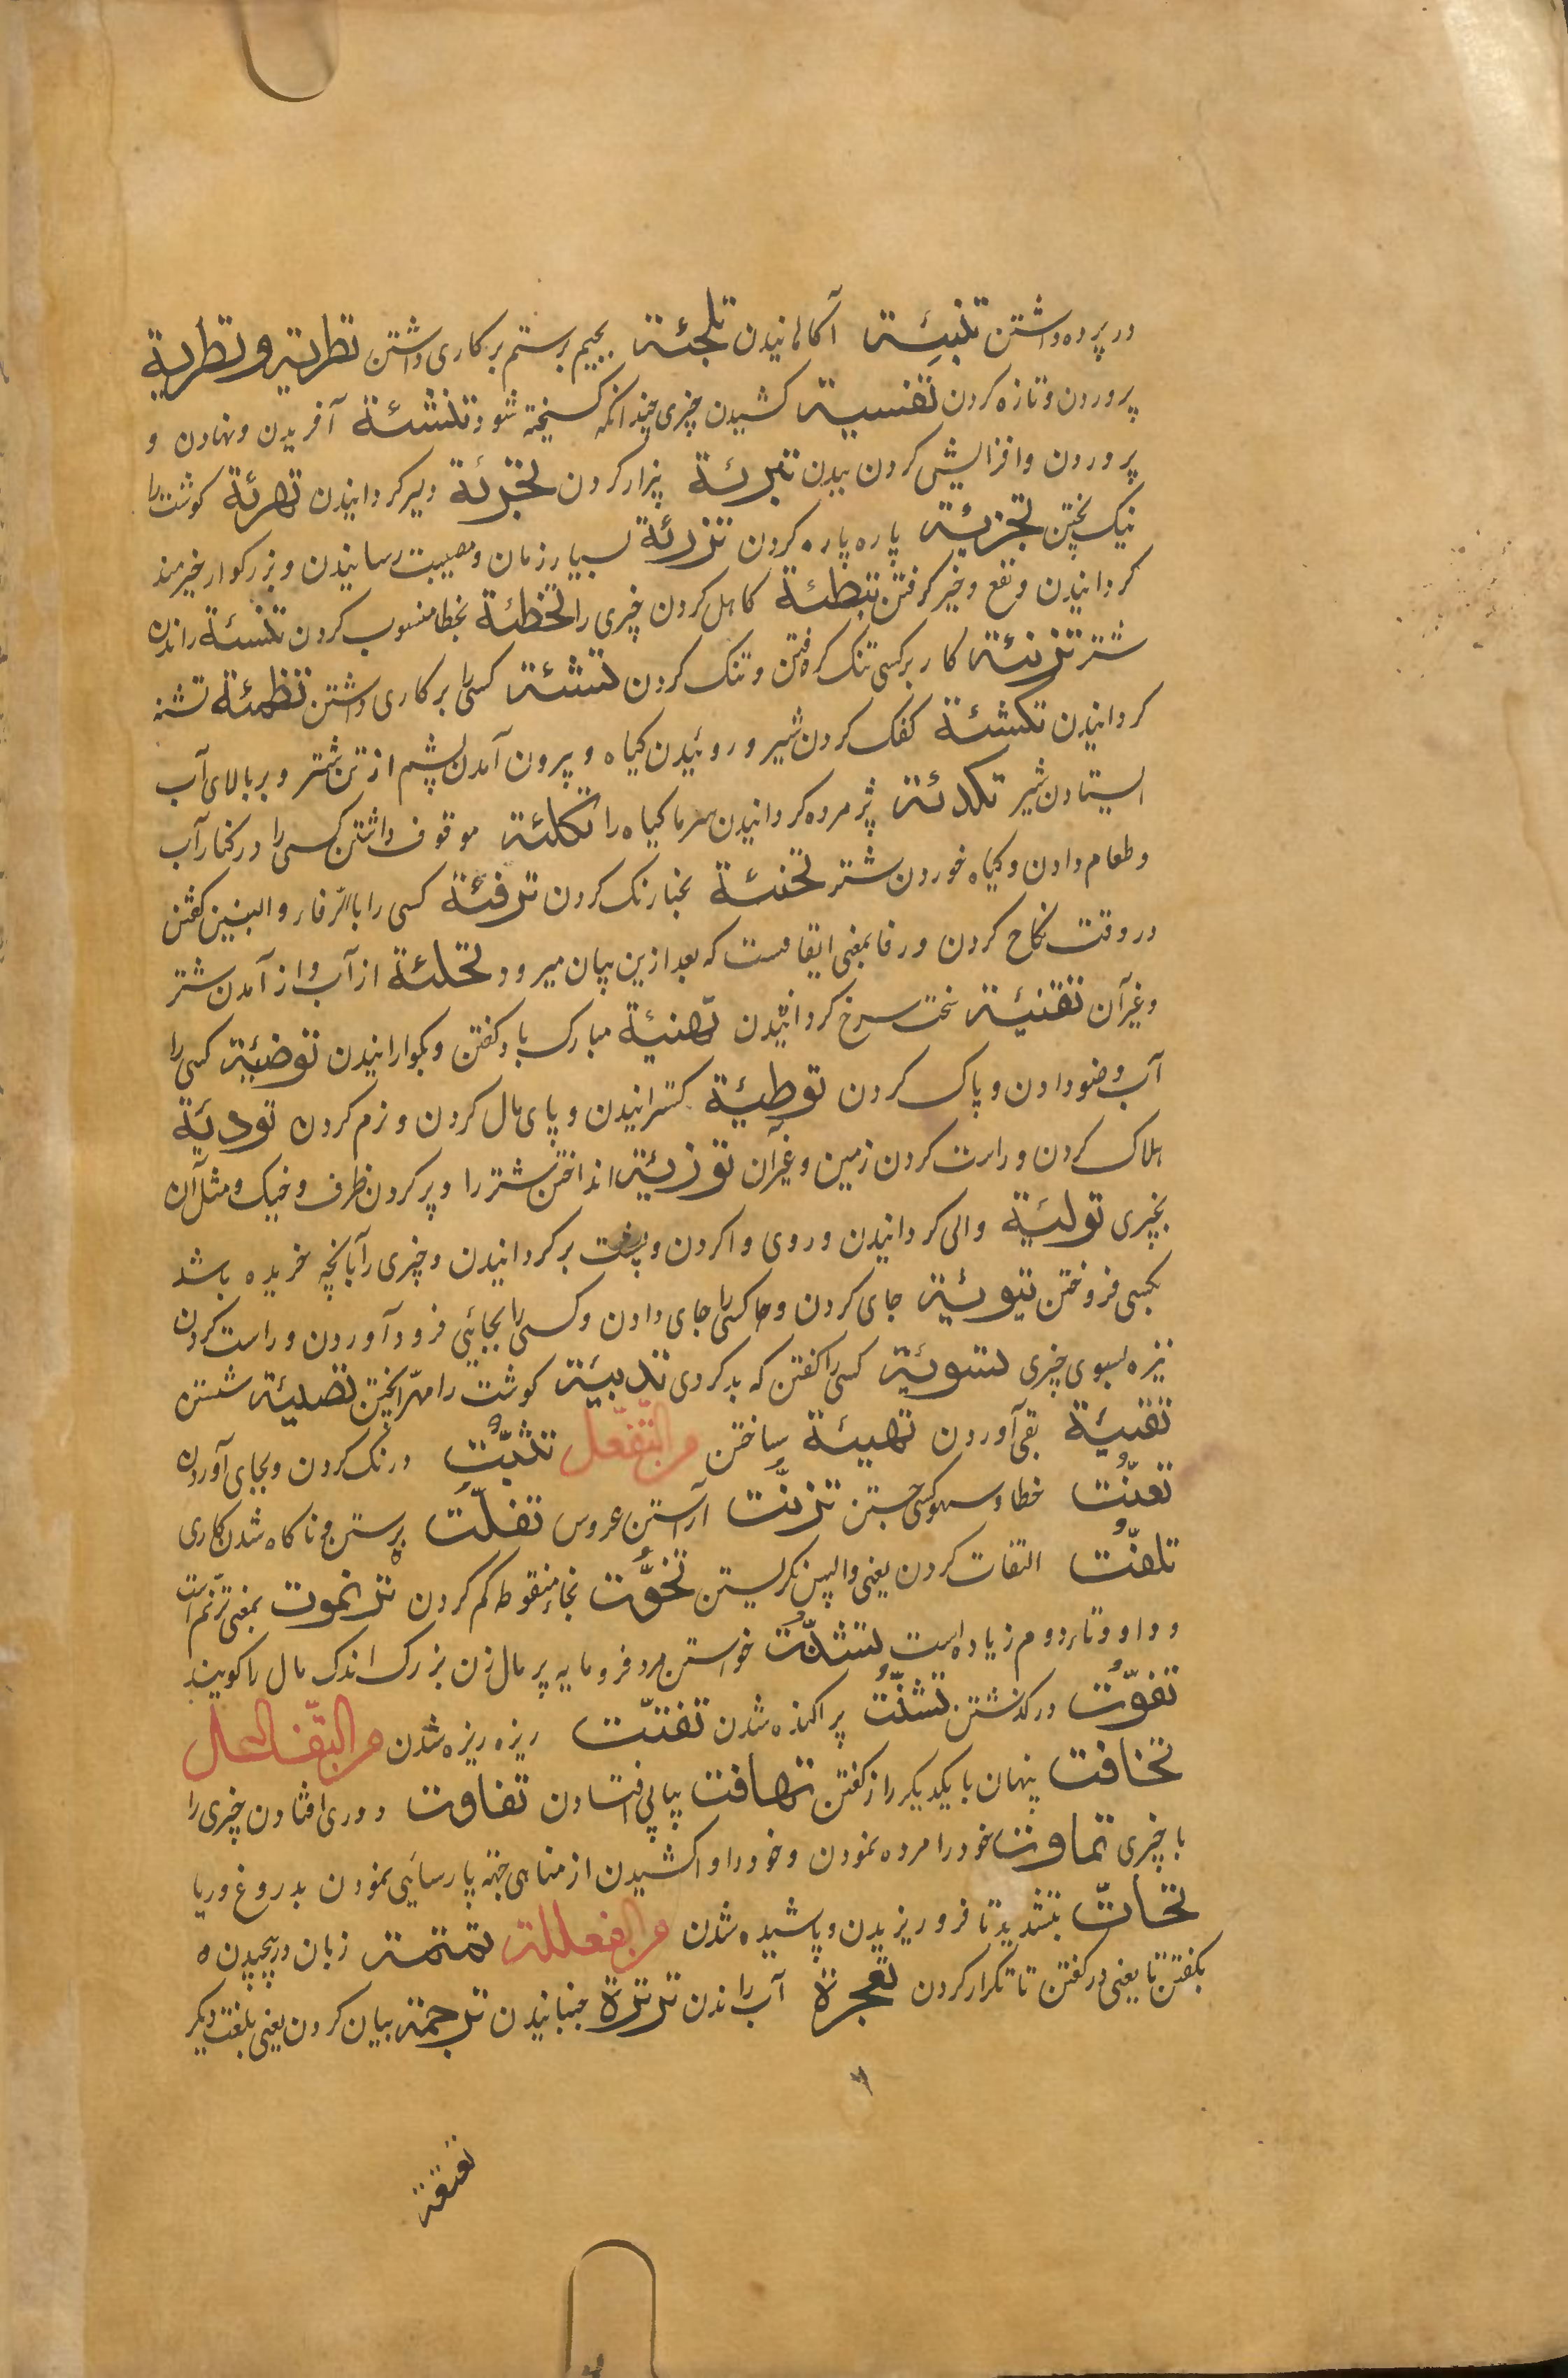 در پرده داشتن تنبئة آکاهانیدن تلجئة بجیم بر ستم بر کاری داشتن تطریة و تطریة
پروردن و تازه کردن تفسیة کشیدن چیزی چندانکه کسیخته شود تنشئة آفریدن و نهادن و
پروردن و افزایش کردن بدن تبرئة بیزار کردن تجرئة دلیر کردانیدن تهرئة کوشت را
نیک پختن تجزئة پاره پاره کردن تزرئة بسیار زمان و مصیبت رسانیدن و بزرکوار خیرمند
کردانیدن و نفع و خیر کرفتن تبطئة کاهل کردن چیزی را تخطئة بخطا منسوب کردن تنسئة راندن
شتر تزنئة کار بر کسی تنک کرفتن و تنک کردن تنشئة کسی را بر کاری داشتن تظمئة تشنه
کردانیدن تکشئة کفک کردن شیر و روئیدن کیاه و بیرون آمدن پشم از تن شتر و بر بالای آب
ایستادن شیر تکدئة پژمرده کردانیدن سرما کیاه را تکلئة موقوف داشتن کسی را در کنار آب
و طعام دادن و کیاه خوردن شتر تحنئة بحنا رنک کردن ترفئة کسی را بالرفاء و البنین کفتن
در وقت نکاح کردن و رفا بمعنی اتفاقست که بعد ازین بیان میرود تحلئة از آب واز آمدن شتر
و غیر آن تقنئة سخت سرخ کردانیدن تهنئة مبارک باد کفتن و بکوارانیدن توضئة کسی را
آب وضو دادن و پاک کردن توطئة کسترانیدن و پای مال کردن و نرم کردن تودئة
هلاک کردن و راست کردن زمین و غیر آن توزئة انداختن شتر را و پر کردن ظرف و خیک و مثل آن
بچیزی تولئة والی کردانیدن و روی وا کردن و پشت بر کردانیدن و چیزی را بآنچه خریده باشد
بکسی فروختن تبوئة جای کردن و جا کسی را جای دادن و کسی را بجائی فرود آوردن و راست کردن
نیزه بسوی چیزی تسوئة کسی را کفتن که بد کردی تدبئة کوشت را مهرا پختن تصلئة شستن
تقیئة بقی آوردن تهیئة ساختن من التفعّل تثبّت درنک کردن و بجای آوردن
تعنّت خطا و سهو کسی جستن تزتّت آراستن عروس تفلّت برستن و ناکاه شدن کاری
تلفّت التفات کردن یعنی واپس نکریستن تخوّت بخاء منقوطه کم کردن ترنموت بمعنی ترنّم است
و واو و تاء دوم زیاده است تنشّت خواستن مرد فرومایه پر مال زن بزرک اندک مال را کویند
تفوّت در کذشتن تشتّت پراکنده شدن تفتّت ریزه ریزه شدن من التّفاعل
تخافت پنهان با یکدیکر راز کفتن تهافت پیاپی افتادن تفاوت دوری افتادن چیزی را
با چیزی تماوت خود را مرده نمودن و خود را وا کشیدن از مناهی جهة پارسائی نمودن بدروغ و ریا
تحاتّ بتشدید تا فرو ریزیدن و پاشیده شدن من الفعللة تمتمة زبان در پیچیدن
بکفتن تا یعنی در کفتن تا تکرار کردن تعجرة آب راندن ترترة جنبانیدن ترجمة بیان کردن یعنی بلغت دیکر
تعتعة